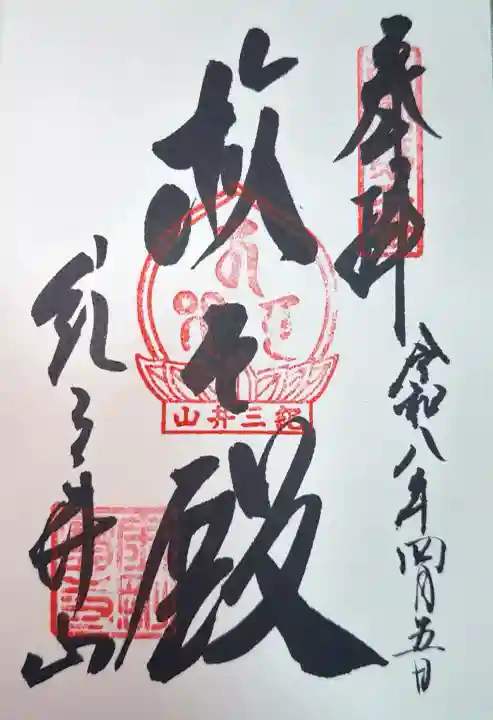 奉拝
令和八年四月五日
救世殿
紀三井山
山井三紀